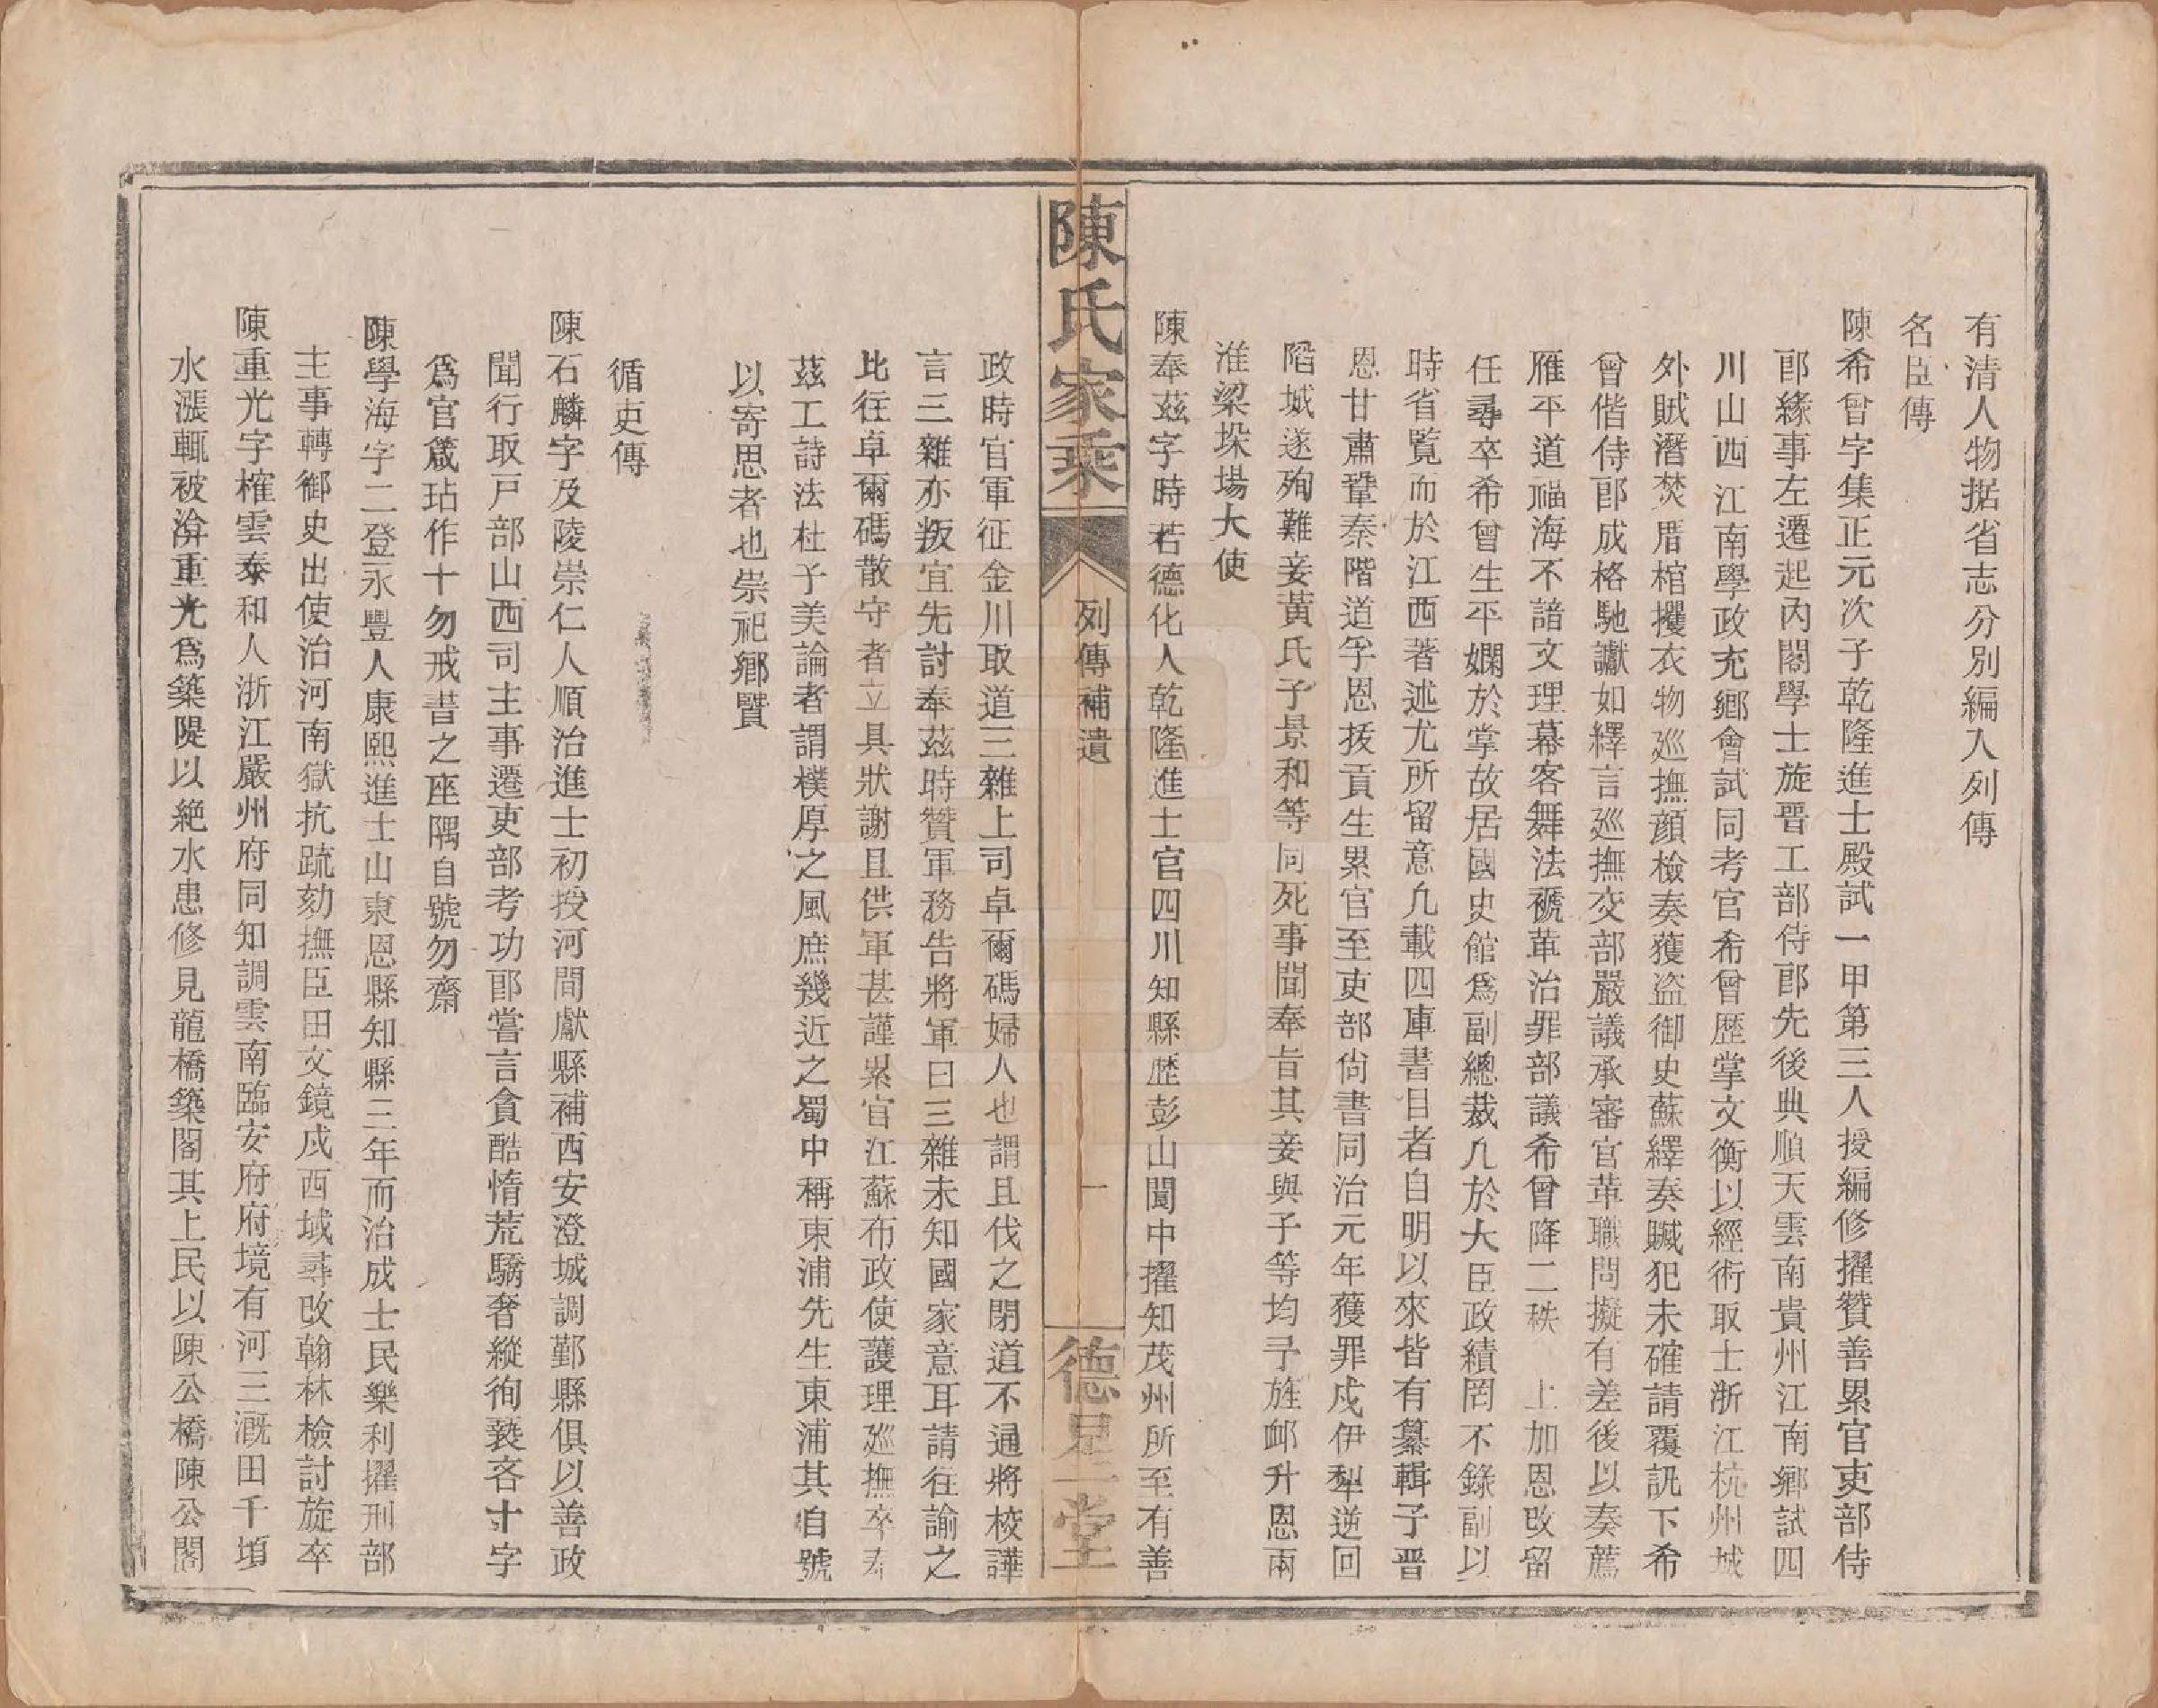 有清人物据省志分別編入列傳
名臣傳
陳希曾字集正元次子乾隆進士殿試一甲第三人授編修擢贊善累官吏部侍
郎緣事左遷起內閣學士旋晋工部侍郎先後典順天雲南貴州江南鄉試四
川山西江南學政充鄉會試同考官希曾歷掌文衡以經術取士浙江杭州城
外賊潛焚厝棺攫衣物巡撫顔檢奏獲盜御史蘇繹奏贓犯未確請覆訊下希
曾偕侍郎成格馳讞如繹言巡撫交部嚴議承審官革職問擬有差後以奏薦
雁平道福海不諳文理幕客舞法褫革治罪部議希曾降二秩 上加恩改留
任尋卒希曾生平嫻於掌故居國史館爲副總裁凡於大臣政績罔不錄副以
時省覽而於江西著述尤所留意凡載四庫書目者自明以來皆有纂輯子晋
恩甘肅鞏秦階道孚恩拔貢生累官至吏部尙書同治元年獲罪戍伊犁逆回
陷城遂殉難妾黃氏子景和等同死事聞奉旨其妾與子等均予旌卹升恩兩
淮梁垜場大使
陳奉茲字時若德化人乾隆進士官四川知縣歷彭山閬中擢知茂州所至有善
陳氏家乘
列傳補遺
一
德星堂
政時官軍征金川取道三雜上司卓爾碼婦人也謂且伐之閉道不通將校譁
言三雜亦叛宜先討奉茲時贊軍務告將軍曰三雜未知國家意耳請往諭之
比往卓爾碼散守者立具狀謝且供軍甚謹累官江蘇布政使護理巡撫卒奉
茲工詩法杜子美論者謂樸厚之風庶幾近之蜀中稱東浦先生東浦其自號
以寄思者也祟祀鄉賢
循吏傳
陳石麟字及陵崇仁人順治進士初授河間獻縣補西安澄城調鄞縣俱以善政
聞行取戶部山西司主事遷吏部考功郎嘗言貪酷惰荒驕奢縱徇褻吝十字
爲官箴玷作十勿戒書之座隅自號勿齋
陳學海字二登永豐人康熙進士山東恩縣知縣三年而治成士民樂利擢刑部
主事轉御史出使治河南獄抗疏劾撫臣田文鏡戍西域尋改翰林檢討旋卒
陳重光字榷雲泰和人浙江嚴州府同知調雲南臨安府府境有河三溉田千頃
水漲輒被渰重光爲築隄以絶水患修見龍橋築閣其上民以陳公橋陳公閣